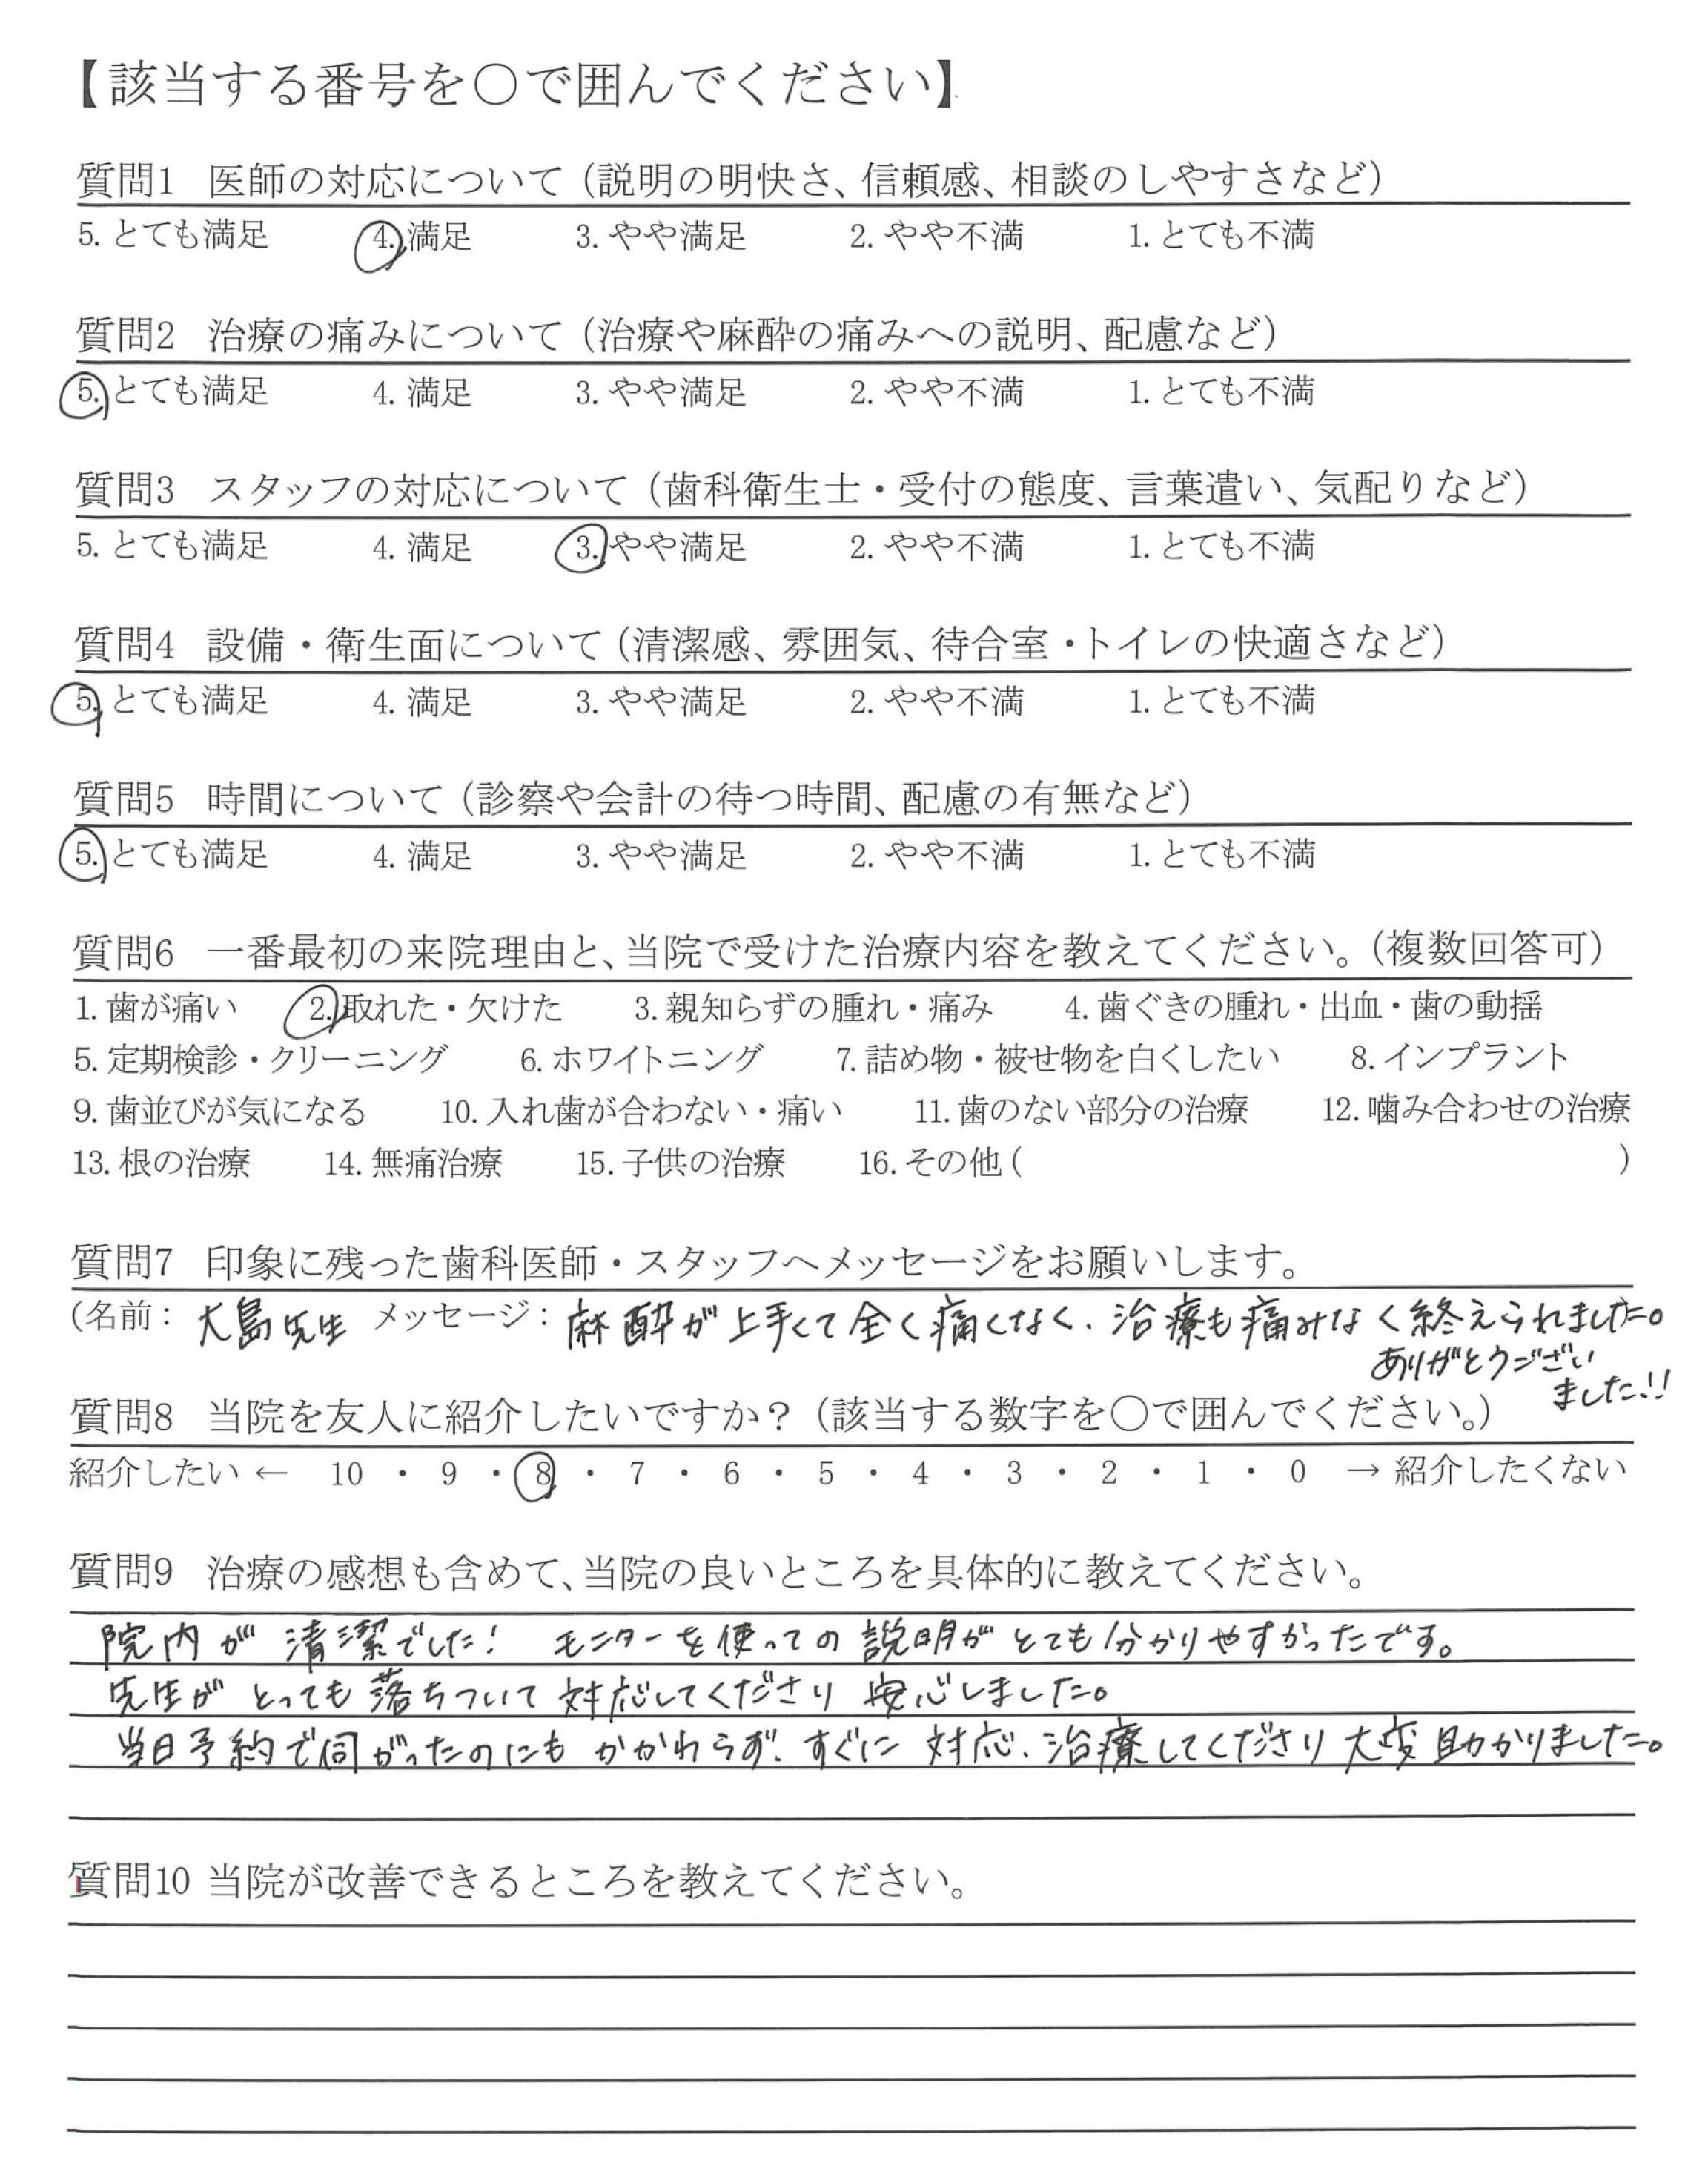 【該当する番号を〇で囲んでください】
質問1 医師の対応について（説明の明快さ、信頼感、相談のしやすさなど）
5. とても満足 4. 満足 3. やや満足 2. やや不満 1. とても不満
質問2 治療の痛みについて（治療や麻酔の痛みへの説明、配慮など）
5. とても満足 4. 満足 3. やや満足 2. やや不満 1. とても不満
質問3 スタッフの対応について（歯科衛生士・受付の態度、言葉遣い、気配りなど）
5. とても満足 4. 満足 3. やや満足 2. やや不満 1. とても不満
質問4 設備・衛生面について（清潔感、雰囲気、待合室・トイレの快適さなど）
5. とても満足 4. 満足 3. やや満足 2. やや不満 1. とても不満
質問5 時間について（診察や会計の待つ時間、配慮の有無など）
5. とても満足 4. 満足 3. やや満足 2. やや不満 1. とても不満
質問6 一番最初の来院理由と、当院で受けた治療内容を教えてください。（複数回答可）
1. 歯が痛い 2. 取れた・欠けた 3. 親知らずの腫れ・痛み 4. 歯ぐきの腫れ・出血・歯の動揺
5. 定期検診・クリーニング 6. ホワイトニング 7. 詰め物・被せ物を白くしたい 8. インプラント
9. 歯並びが気になる 10. 入れ歯が合わない・痛い 11. 歯のない部分の治療 12. 噛み合わせの治療
13. 根の治療 14. 無痛治療 15. 子供の治療 16. その他（ ）
質問7 印象に残った歯科医師・スタッフへメッセージをお願いします。
（名前： 大島先生 メッセージ： 麻酔が上手くて全く痛くなく、治療も痛みなく終えられました。
ありがとうござい
ました!!
質問8 当院を友人に紹介したいですか？（該当する数字を〇で囲んでください。）
紹介したい ← 10 ・ 9 ・ 8 ・ 7 ・ 6 ・ 5 ・ 4 ・ 3 ・ 2 ・ 1 ・ 0 → 紹介したくない
質問9 治療の感想も含めて、当院の良いところを具体的に教えてください。
院内が清潔でした! モニターを使っての説明がとても分かりやすかったです。
先生がとっても落ちついて対応してくださり安心しました。
当日予約で伺がったのにもかかわらず、すぐに対応、治療してくださり大変助かりました。
質問10 当院が改善できるところを教えてください。